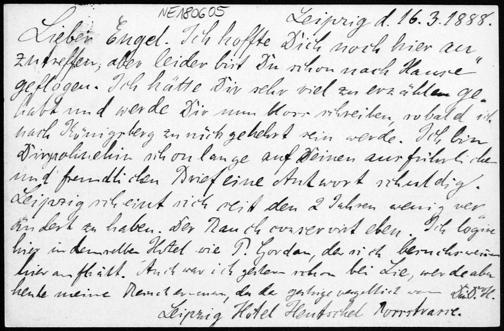 NE180605
Leipzig d. 16.3.1888.
Lieber Engel. Ich hoffte Dich noch hier an
zutreffen, aber leider bist Du schon nach Hause
geflogen. Ich hätte Dir sehr viel zu erzählen ge
habt und werde Dir nun schreiben, sobald ich
nach Königsberg zurückgekehrt sein werde. Ich bin
Dir ohnehin schon lange auf Deinen ausführlichen
und freundlichen Brief eine Antwort schuldig.
Leipzig scheint sich seit den 2 Jahren wenig ver
ändert zu haben. Der Rauch conservirt eben. Ich logire
hier in demselben Hotel wie P. Gordan, der sich besuchsweise
hier aufhält. Auch war ich gestern schon bei Lie, werde aber
heute meine, da der gestrige vergeblich war
Leipzig Hotel Hentschel Rossstrasse.